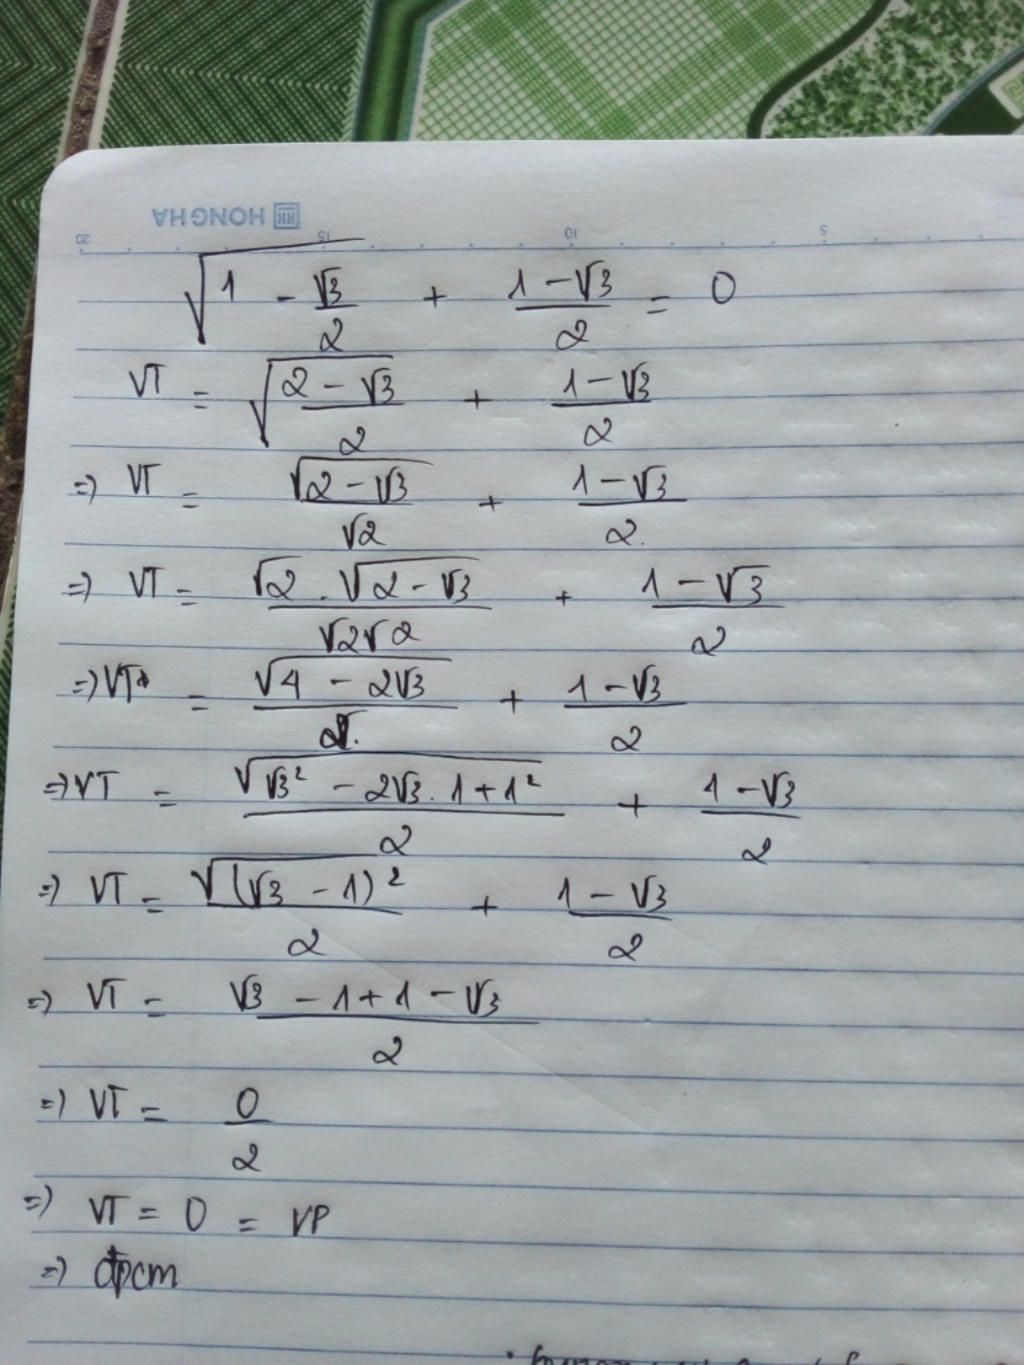 HONG HA
20 15 10 5
√(1 - √3/2) + (1 - √3)/2 = 0
VT = √((2 - √3)/2) + (1 - √3)/2
=) VT = √(2 - √3)/√2 + (1 - √3)/2.
=) VT = (√2 . √(2 - √3))/(√2√2) + (1 - √3)/2
=) VT = √(4 - 2√3)/2. + (1 - √3)/2
=) VT = √(√3² - 2√3 . 1 + 1²)/2 + (1 - √3)/2
=) VT = √((√3 - 1)²)/2 + (1 - √3)/2
=) VT = (√3 - 1 + 1 - √3)/2
=) VT = 0/2
=) VT = 0 = VP
=) đpcm